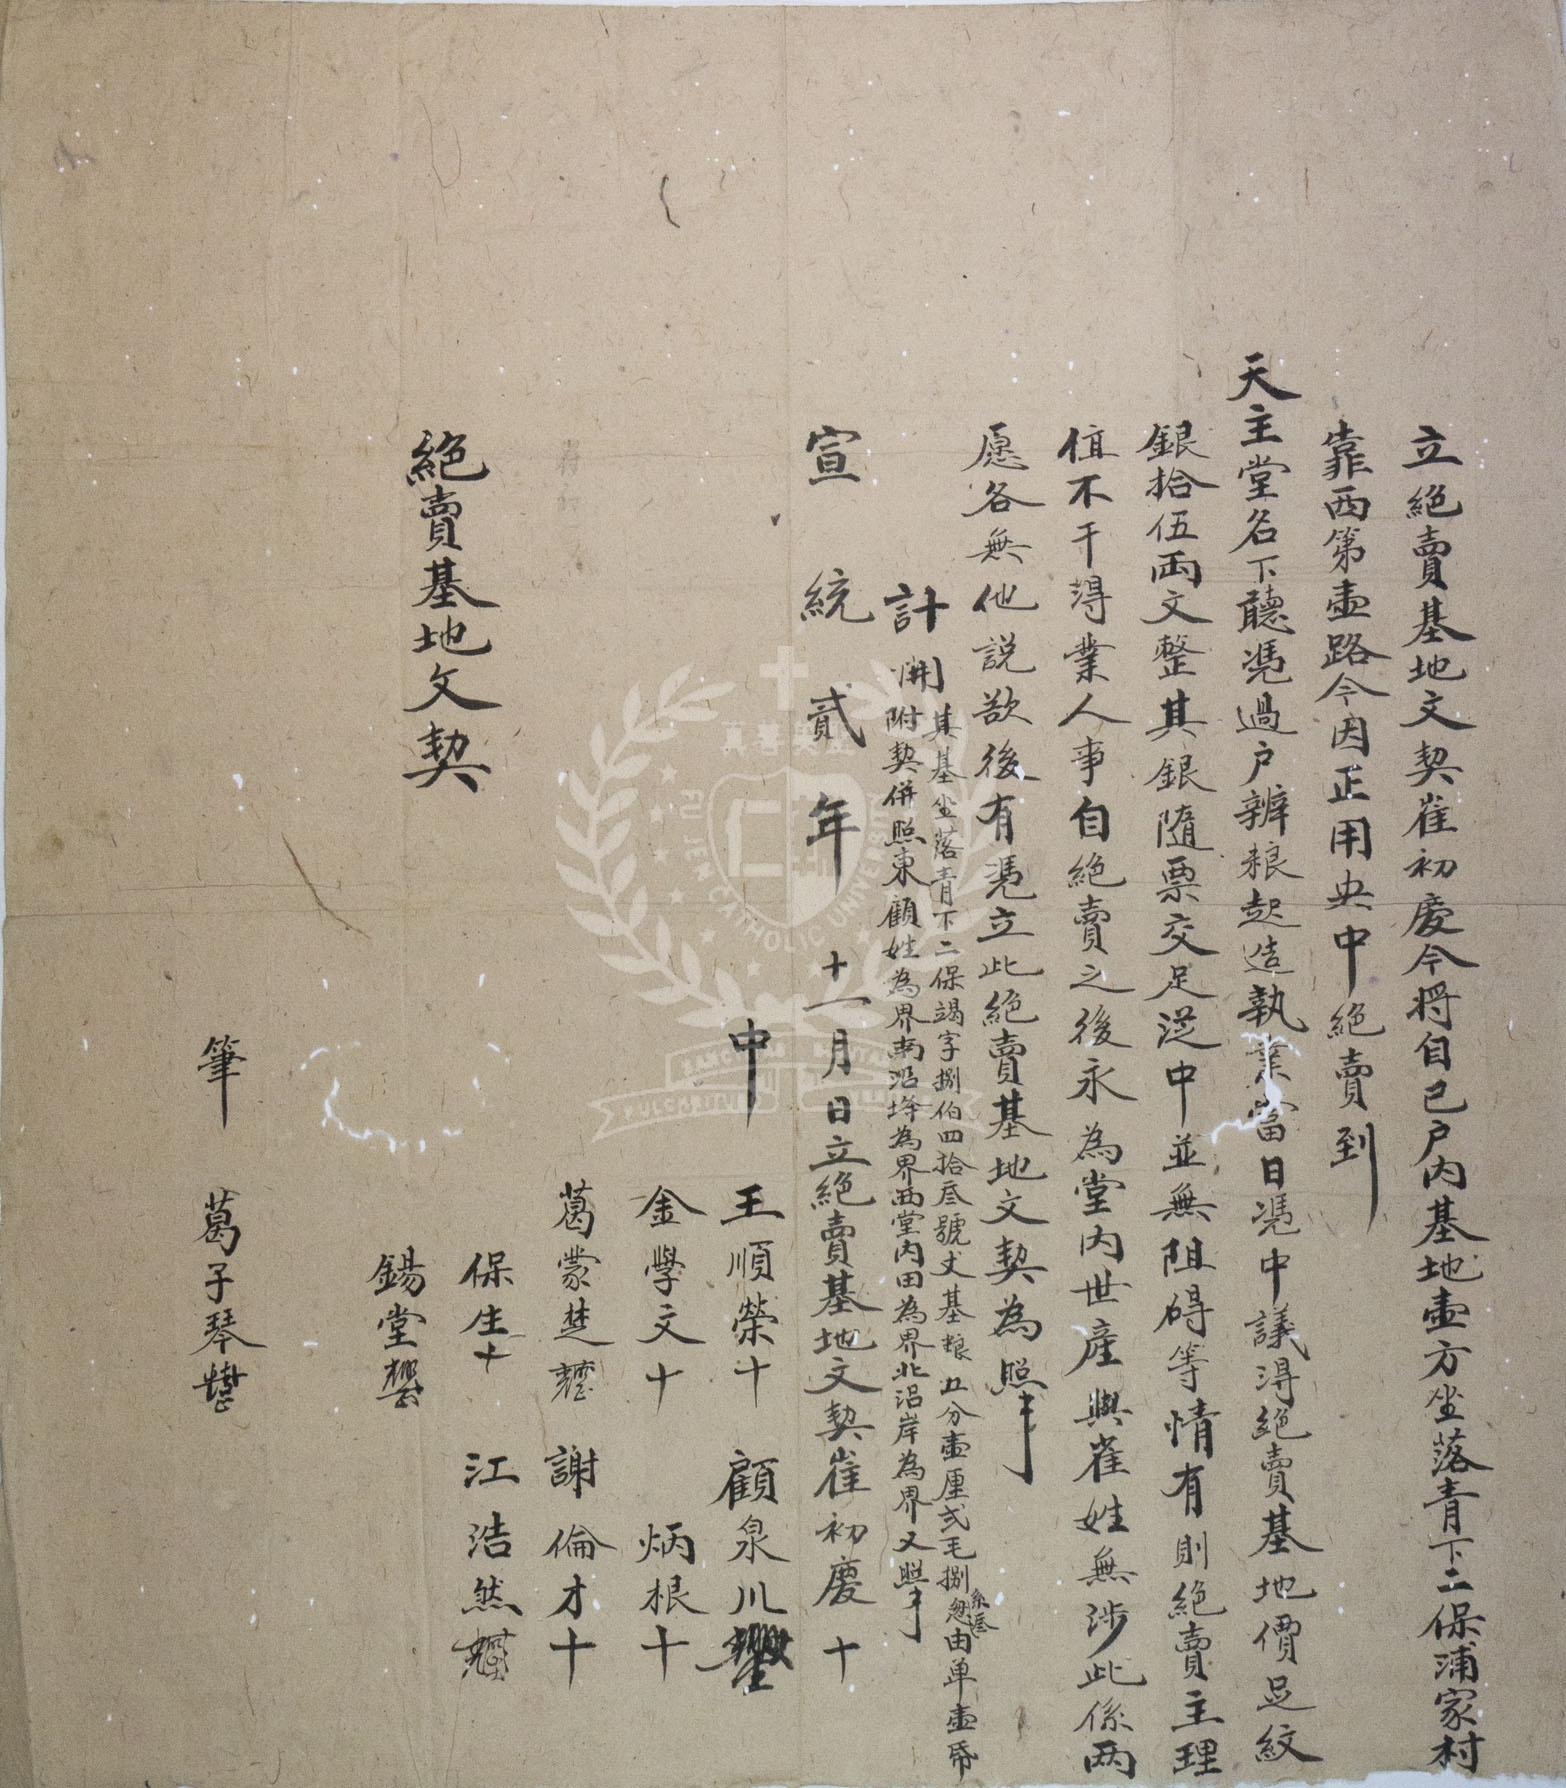 立絕賣基地文契崔初慶今將自己户内基地壷方坐落青下二保浦家村
靠西第壷路今因正用央中絕賣到
天主堂名下聽憑過户辦粮起造執業當日憑中議淂絕賣基地價足紋
銀拾伍両文整其銀隨票交足逕中並無阻碍等情有則絕賣主理
值不干淂業人事自絕賣之後永為堂内世産與崔姓無涉此係两
愿各無他説欲後有憑立此絕賣基地文契為照
計開其基坐落青下二保竭字捌伯四拾叁號丈基粮五分壷厘弍毛捌忽由单壷帋
附契併照東顧姓為界南沿埄為界西堂内田為界北沿岸為界又照
宣統貳年十一月日立絕賣基地文契崔初慶十
中王順榮十顧泉川
金學文十炳根十
葛蒙楚謝倫才十
保生十江浩然
錫堂
絕賣基地文契
筆葛子琴
FU JEN CATHOLIC UNIVERSITY